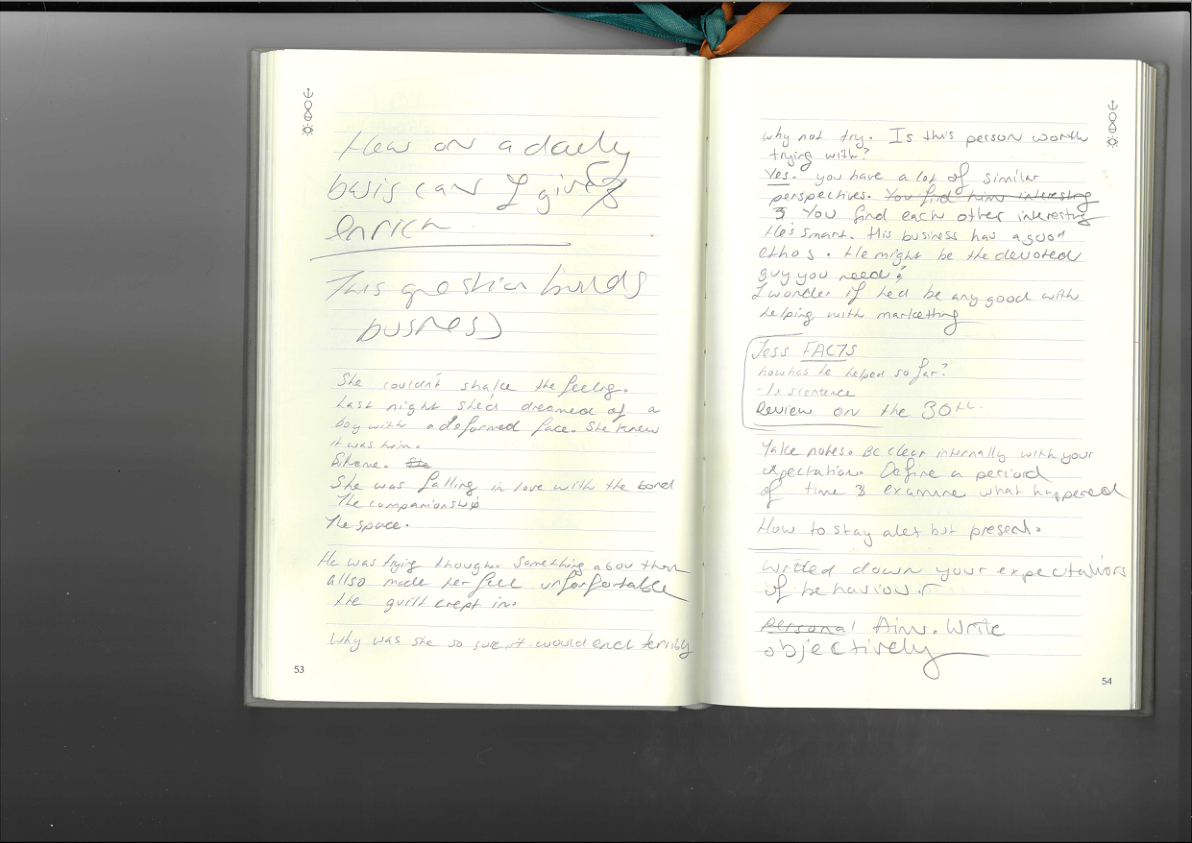 How on a daily
basis can I give &
enrich
This question builds
business
She couldn't shake the feeling.
Last night she'd dreamed of a
boy with a deformed face. She knew
it was him.
She was falling in love with the bond
The companionship
The space.
He was trying though. Something about that
allso made her feel
the guilt crept in.
Why was she so sure it would end terribly
53
why not try. Is this person worth
trying with?
Yes. you have a lot of similar
perspectives. You find him interesting
& You find each other interesting
He's smart. His business has a good
ethos. He might be the devoted
guy you need?
I wonder if he'd be any good with
helping with marketing
Jess FACTS
how has he helped so far?
- 1x scentence
Review on the 30th.
Take notes. Be clear internally with your
expectation. Define a period
of time & examine what happened
How to stay alet but present.
writed down your expectations
of behaviour
Personal Aims. Write
objectively
54